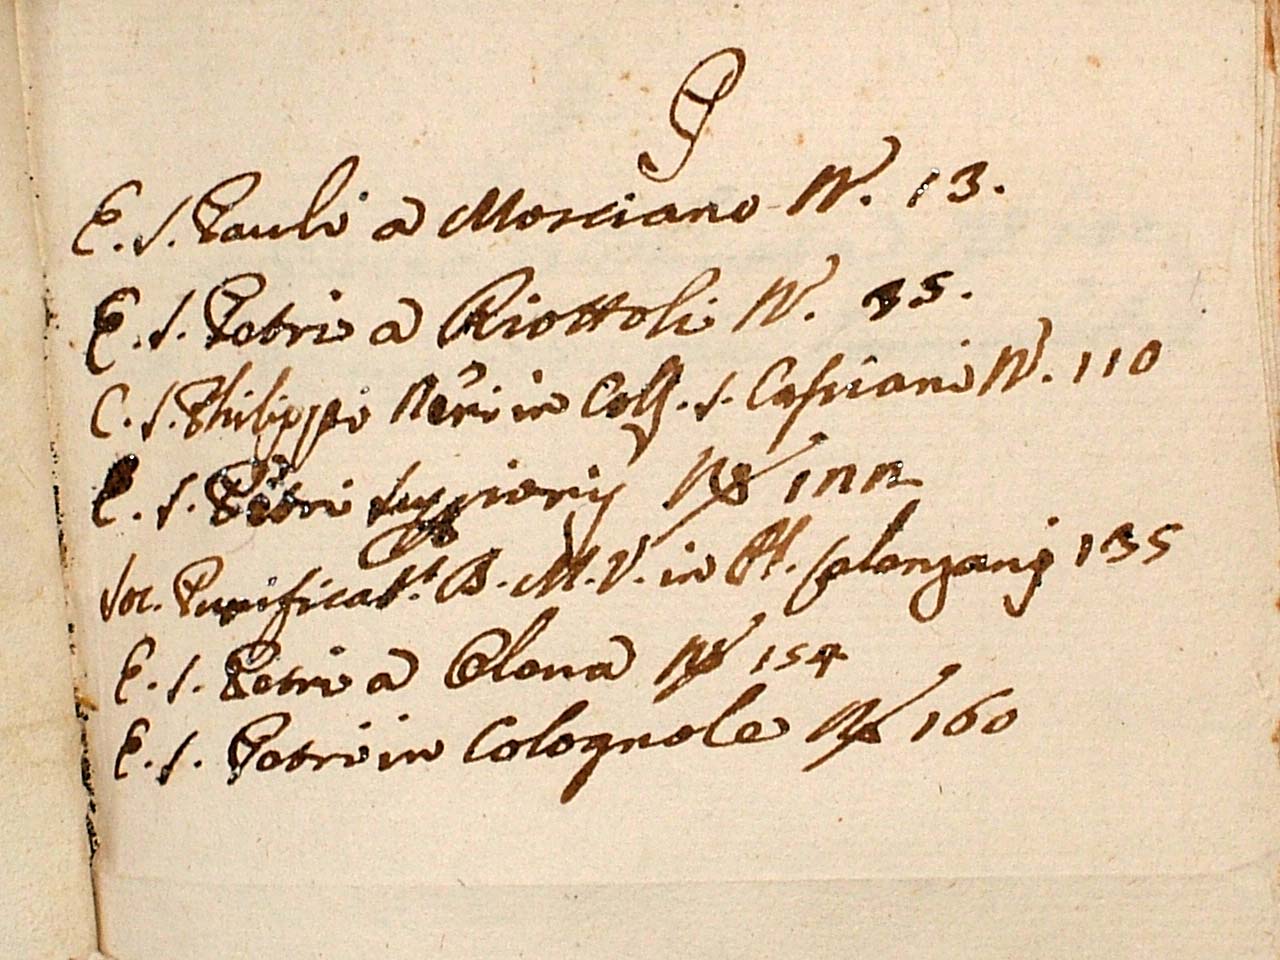 P
E. S. Pauli a Mosciano N. 13.
E. S. Petri a Riottoli N. 35.
C. S. Philippi Neri in Coll. S. Cassiani N. 110
E. S. Petri N.
Soc. Purificat. B. M. V. in Pl. 135
E. S. Petri a Elena N 154
E. S. Petri in Colognole N 160